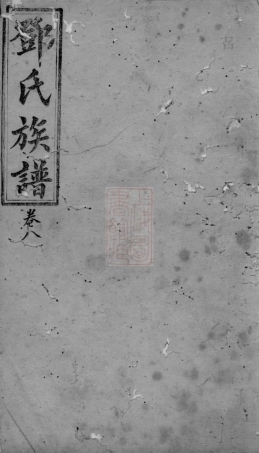 鄧氏族譜
卷八